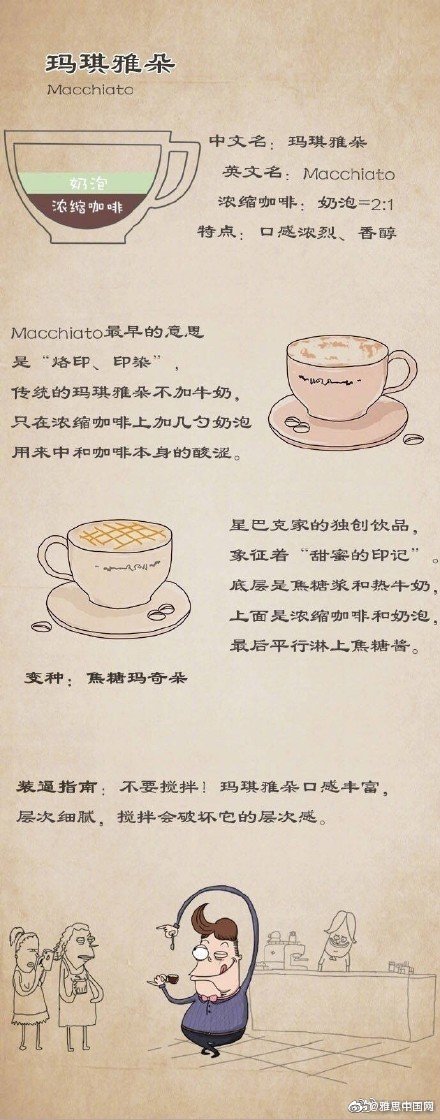 玛琪雅朵
Macchiato
奶泡
浓缩咖啡
中文名：玛琪雅朵
英文名：Macchiato
浓缩咖啡：奶泡=2:1
特点：口感浓烈、香醇
Macchiato最早的意思
是“烙印、印染”，
传统的玛琪雅朵不加牛奶，
只在浓缩咖啡上加几勺奶泡
用来中和咖啡本身的酸涩。
星巴克家的独创饮品，
象征着“甜蜜的印记”。
底层是焦糖浆和热牛奶，
上面是浓缩咖啡和奶泡，
最后平行淋上焦糖酱。
变种：焦糖玛奇朵
装逼指南：不要搅拌！玛琪雅朵口感丰富，
层次细腻，搅拌会破坏它的层次感。
@雅思中国网